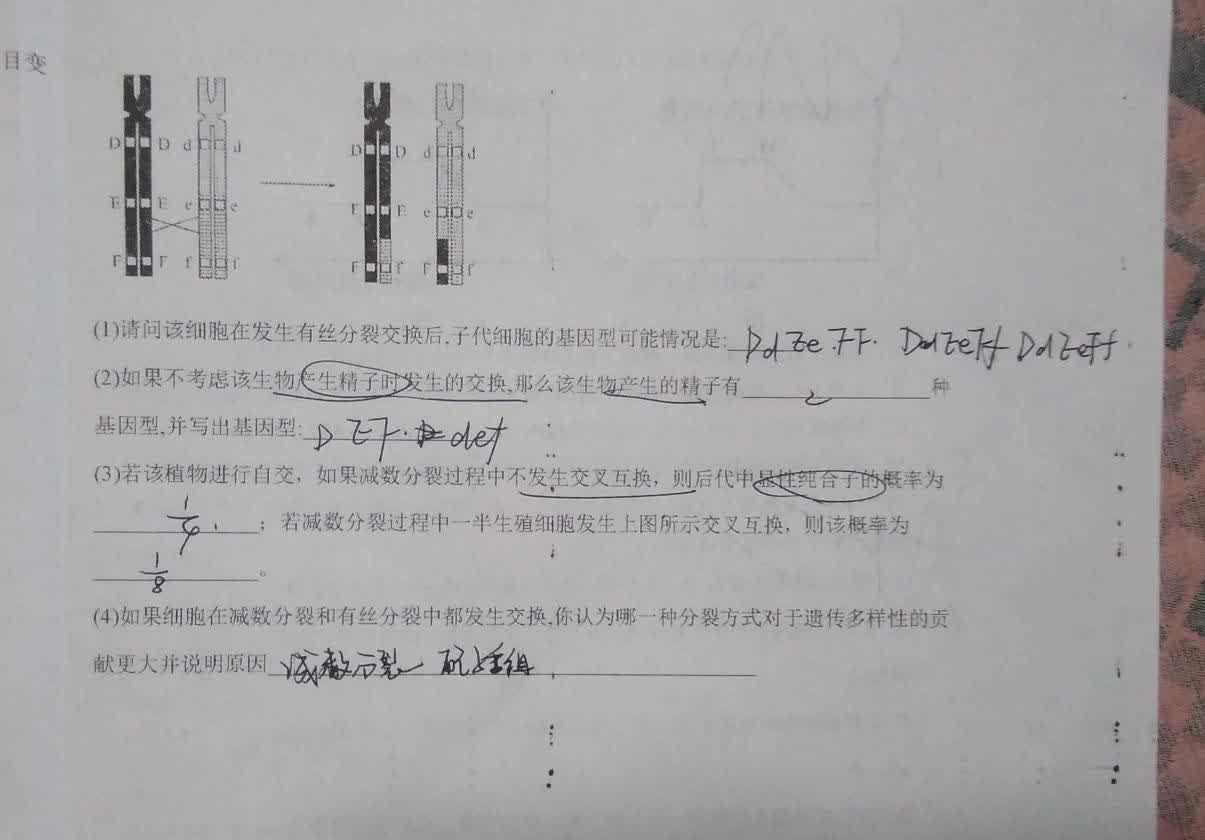 目变
D D d d D D d d
E E e e E E e e
F F f f F f F f
(1)请问该细胞在发生有丝分裂交换后,子代细胞的基因型可能情况是: DdEe.FF. DdEeFf DdEeff
(2)如果不考虑该生物产生精子时发生的交换,那么该生物产生的精子有 2 种
基因型,并写出基因型: DEF. def
(3)若该植物进行自交，如果减数分裂过程中不发生交叉互换，则后代中显性纯合子的概率为
1/4 ；若减数分裂过程中一半生殖细胞发生上图所示交叉互换，则该概率为
1/8 。
(4)如果细胞在减数分裂和有丝分裂中都发生交换,你认为哪一种分裂方式对于遗传多样性的贡
献更大并说明原因 减数分裂